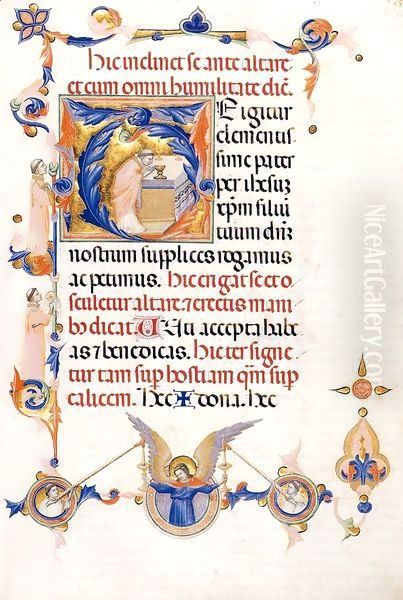 Hic inclinet se ante altare
et cum omni humilitate dic̄.
TE igitur
clementis
sime pater
per ihesuʒ
xp̄m filiū
tuum dn̄ʒ
nostrum suplices rogamus
ac petimus. Hic erigat se et o
sculetur altare. ⁊ erectis mani
bꝰ dicat. Uti accepta habe
as ⁊ benedicas. Hic ter signe
tur tam suꝑ hostiam qm̄ suꝑ
calicem. Hec ✠ dona. hec
NiceArtGallery.com